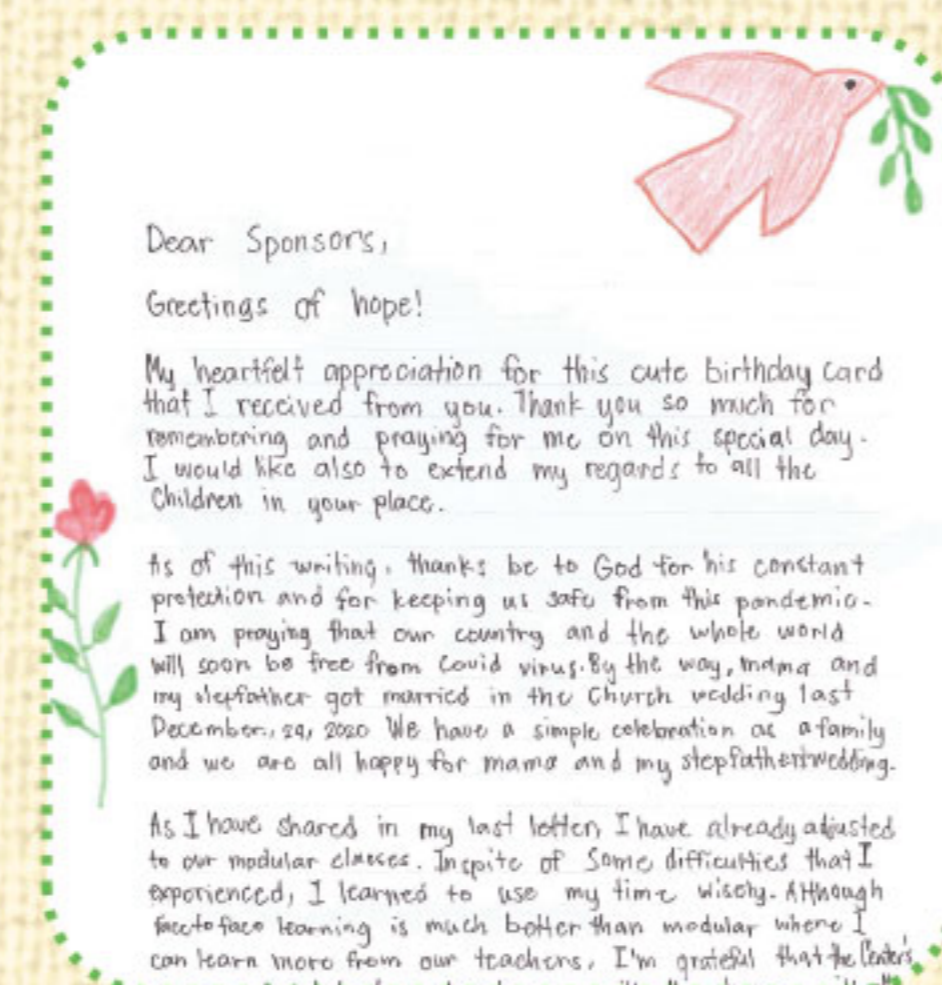 Dear Sponsors,
Greetings of hope!
My heartfelt appreciation for this cute birthday card
that I received from you. Thank you so much for
remembering and praying for me on this special day.
I would like also to extend my regards to all the
Children in your place.
As of this writing, thanks be to God for his constant
protection and for keeping us safe from this pandemic.
I am praying that our country and the whole world
will soon be free from Covid virus. By the way, mama and
my stepfather got married in the Church wedding last
December., 29, 2020 We have a simple celebration as a family
and we are all happy for mama and my stepfather wedding.
As I have shared in my last letter, I have already adjusted
to our modular classes. Inspite of Some difficulties that I
experienced, I learned to use my time wisely. Although
face to face learning is much better than modular where I
can learn more from our teachers, I'm grateful that the Center's